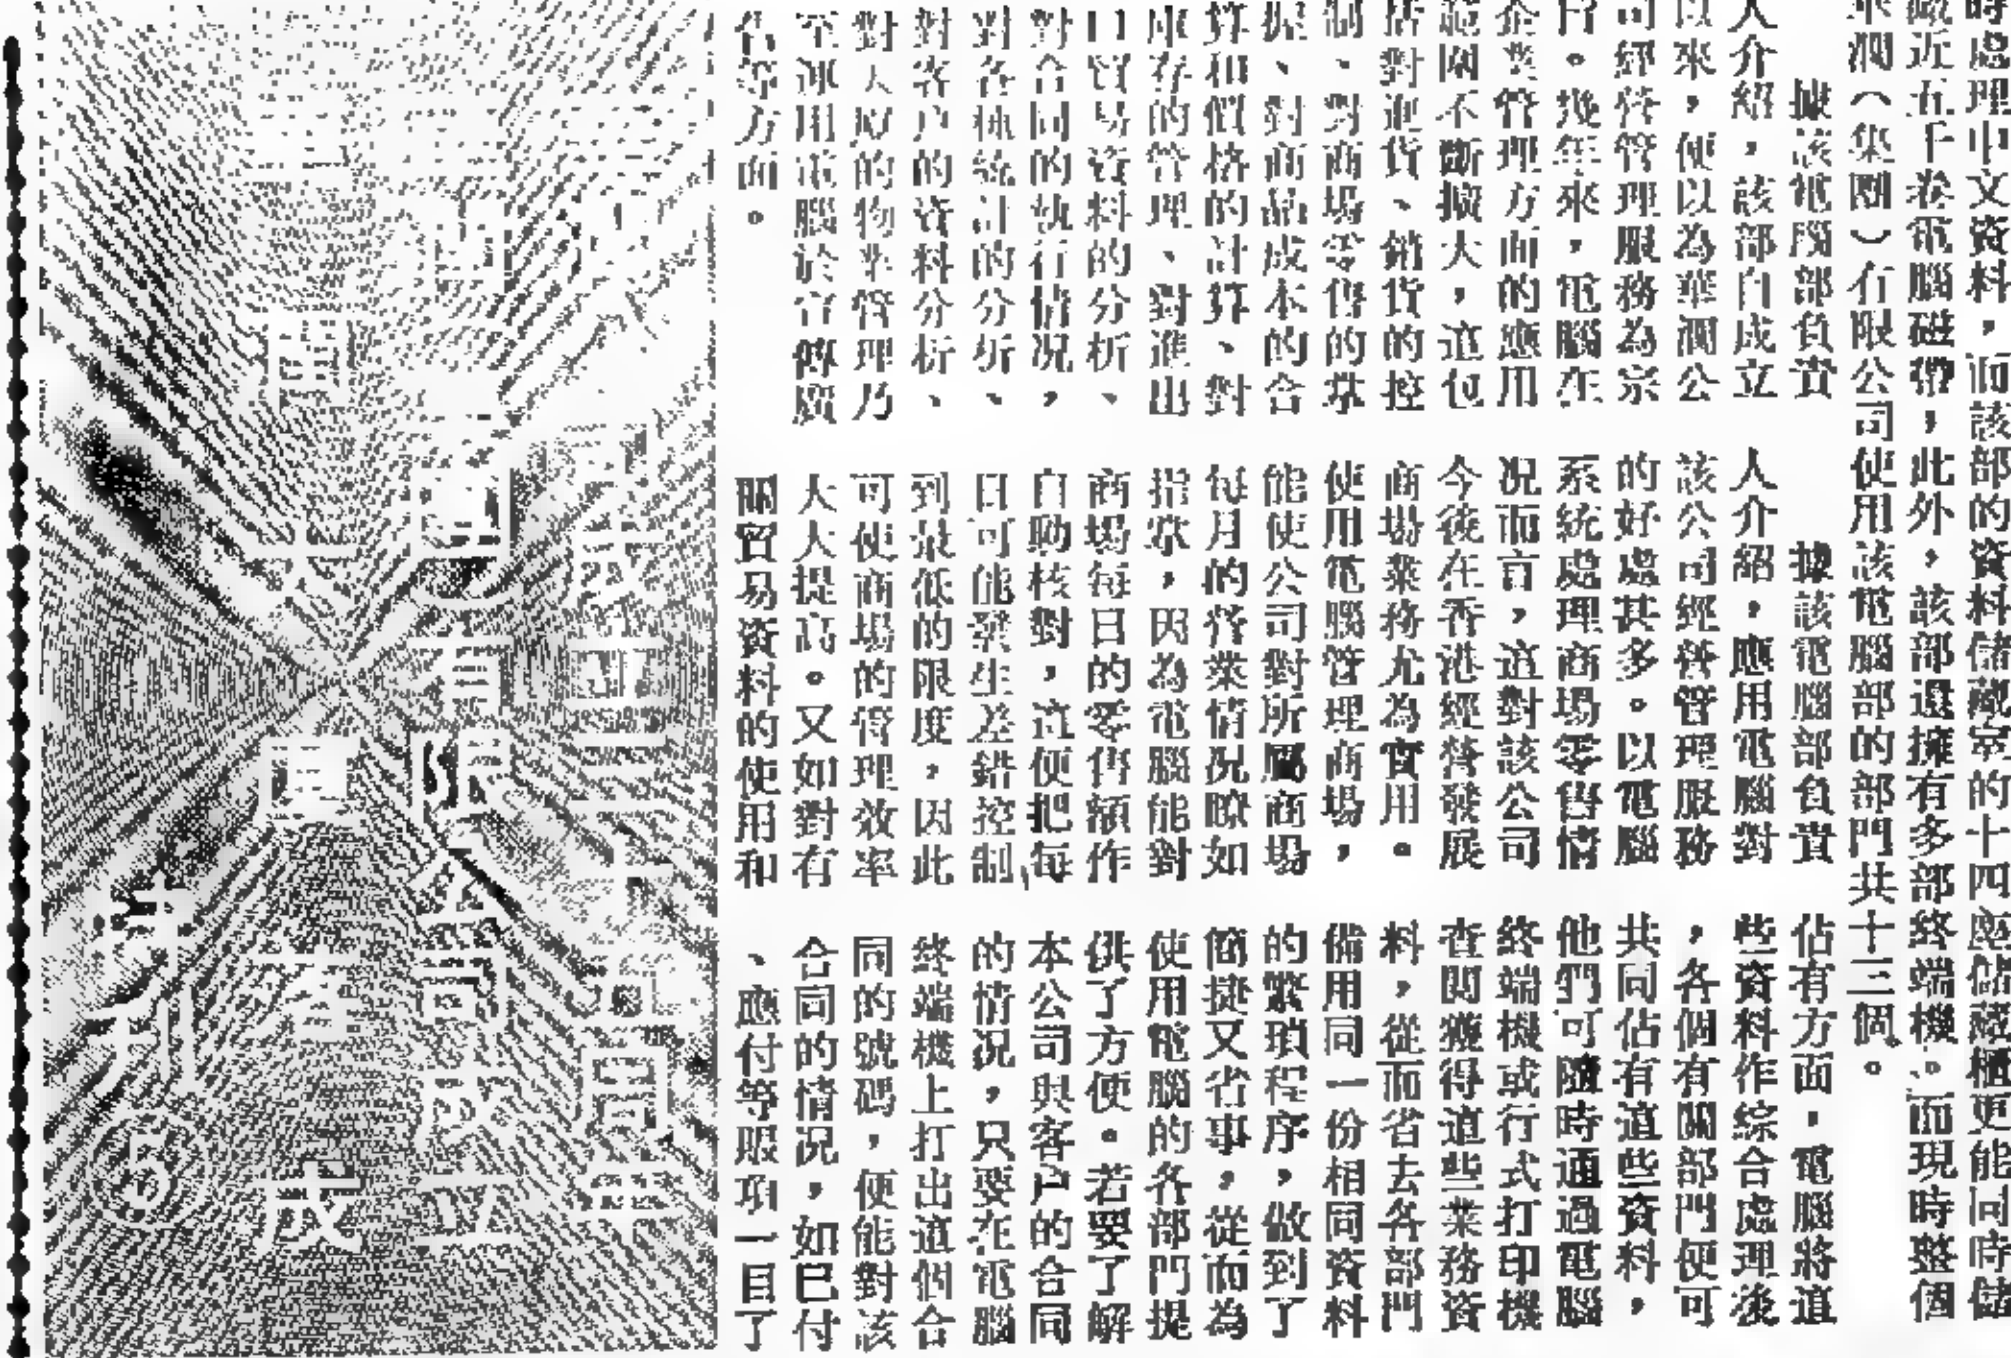 時處理中文資料，而該部的資料儲藏室的十四座儲藏櫃更能同時儲
藏近五千卷電腦磁帶，此外，該部還擁有多部終端機。而現時整個
華潤（集團）有限公司使用該電腦部的部門共十三個。
據該電腦部負責
人介紹，該部自成立
以來，便以為華潤公
司經營管理服務為宗
旨。幾年來，電腦在
企業管理方面的應用
範圍不斷擴大，這包
括對進貨、銷貨的控
制、對商場零售的掌
握、對商品成本的合
算和價格的計算、對
庫存的管理、對進出
口貿易資料的分析、
對合同的執行情況，
對各種統計的分析、
對客户的資料分析、
對大廈的物業管理乃
至運用電腦於宣傳廣
告等方面。
據該電腦部負責
人介紹，應用電腦對
該公司經營管理服務
的好處甚多。以電腦
系統處理商場零售情
况而言，這對該公司
今後在香港經營發展
商場業務尤為實用。
使用電腦管理商場，
能使公司對所屬商場
每月的營業情况瞭如
指掌，因為電腦能對
商場每日的零售額作
自動核對，這便把每
日可能發生差錯控制
到最低的限度，因此
可使商場的管理效率
大大提高。又如對有
關貿易資料的使用和
佔有方面，電腦將這
些資料作綜合處理後
，各個有關部門便可
共同佔有這些資料，
他們可隨時通過電腦
終端機或行式打印機
查閱獲得這些業務資
料，從而省去各部門
備用同一份相同資料
的繁瑣程序，做到了
簡捷又省事，從而為
使用電腦的各部門提
供了方便。若要了解
本公司與客户的合同
的情況，只要在電腦
終端機上打出這個合
同的號碼，便能對該
合同的情况，如已付
、應付等賬項一目了
成立
有限公司成立
特刊⑤